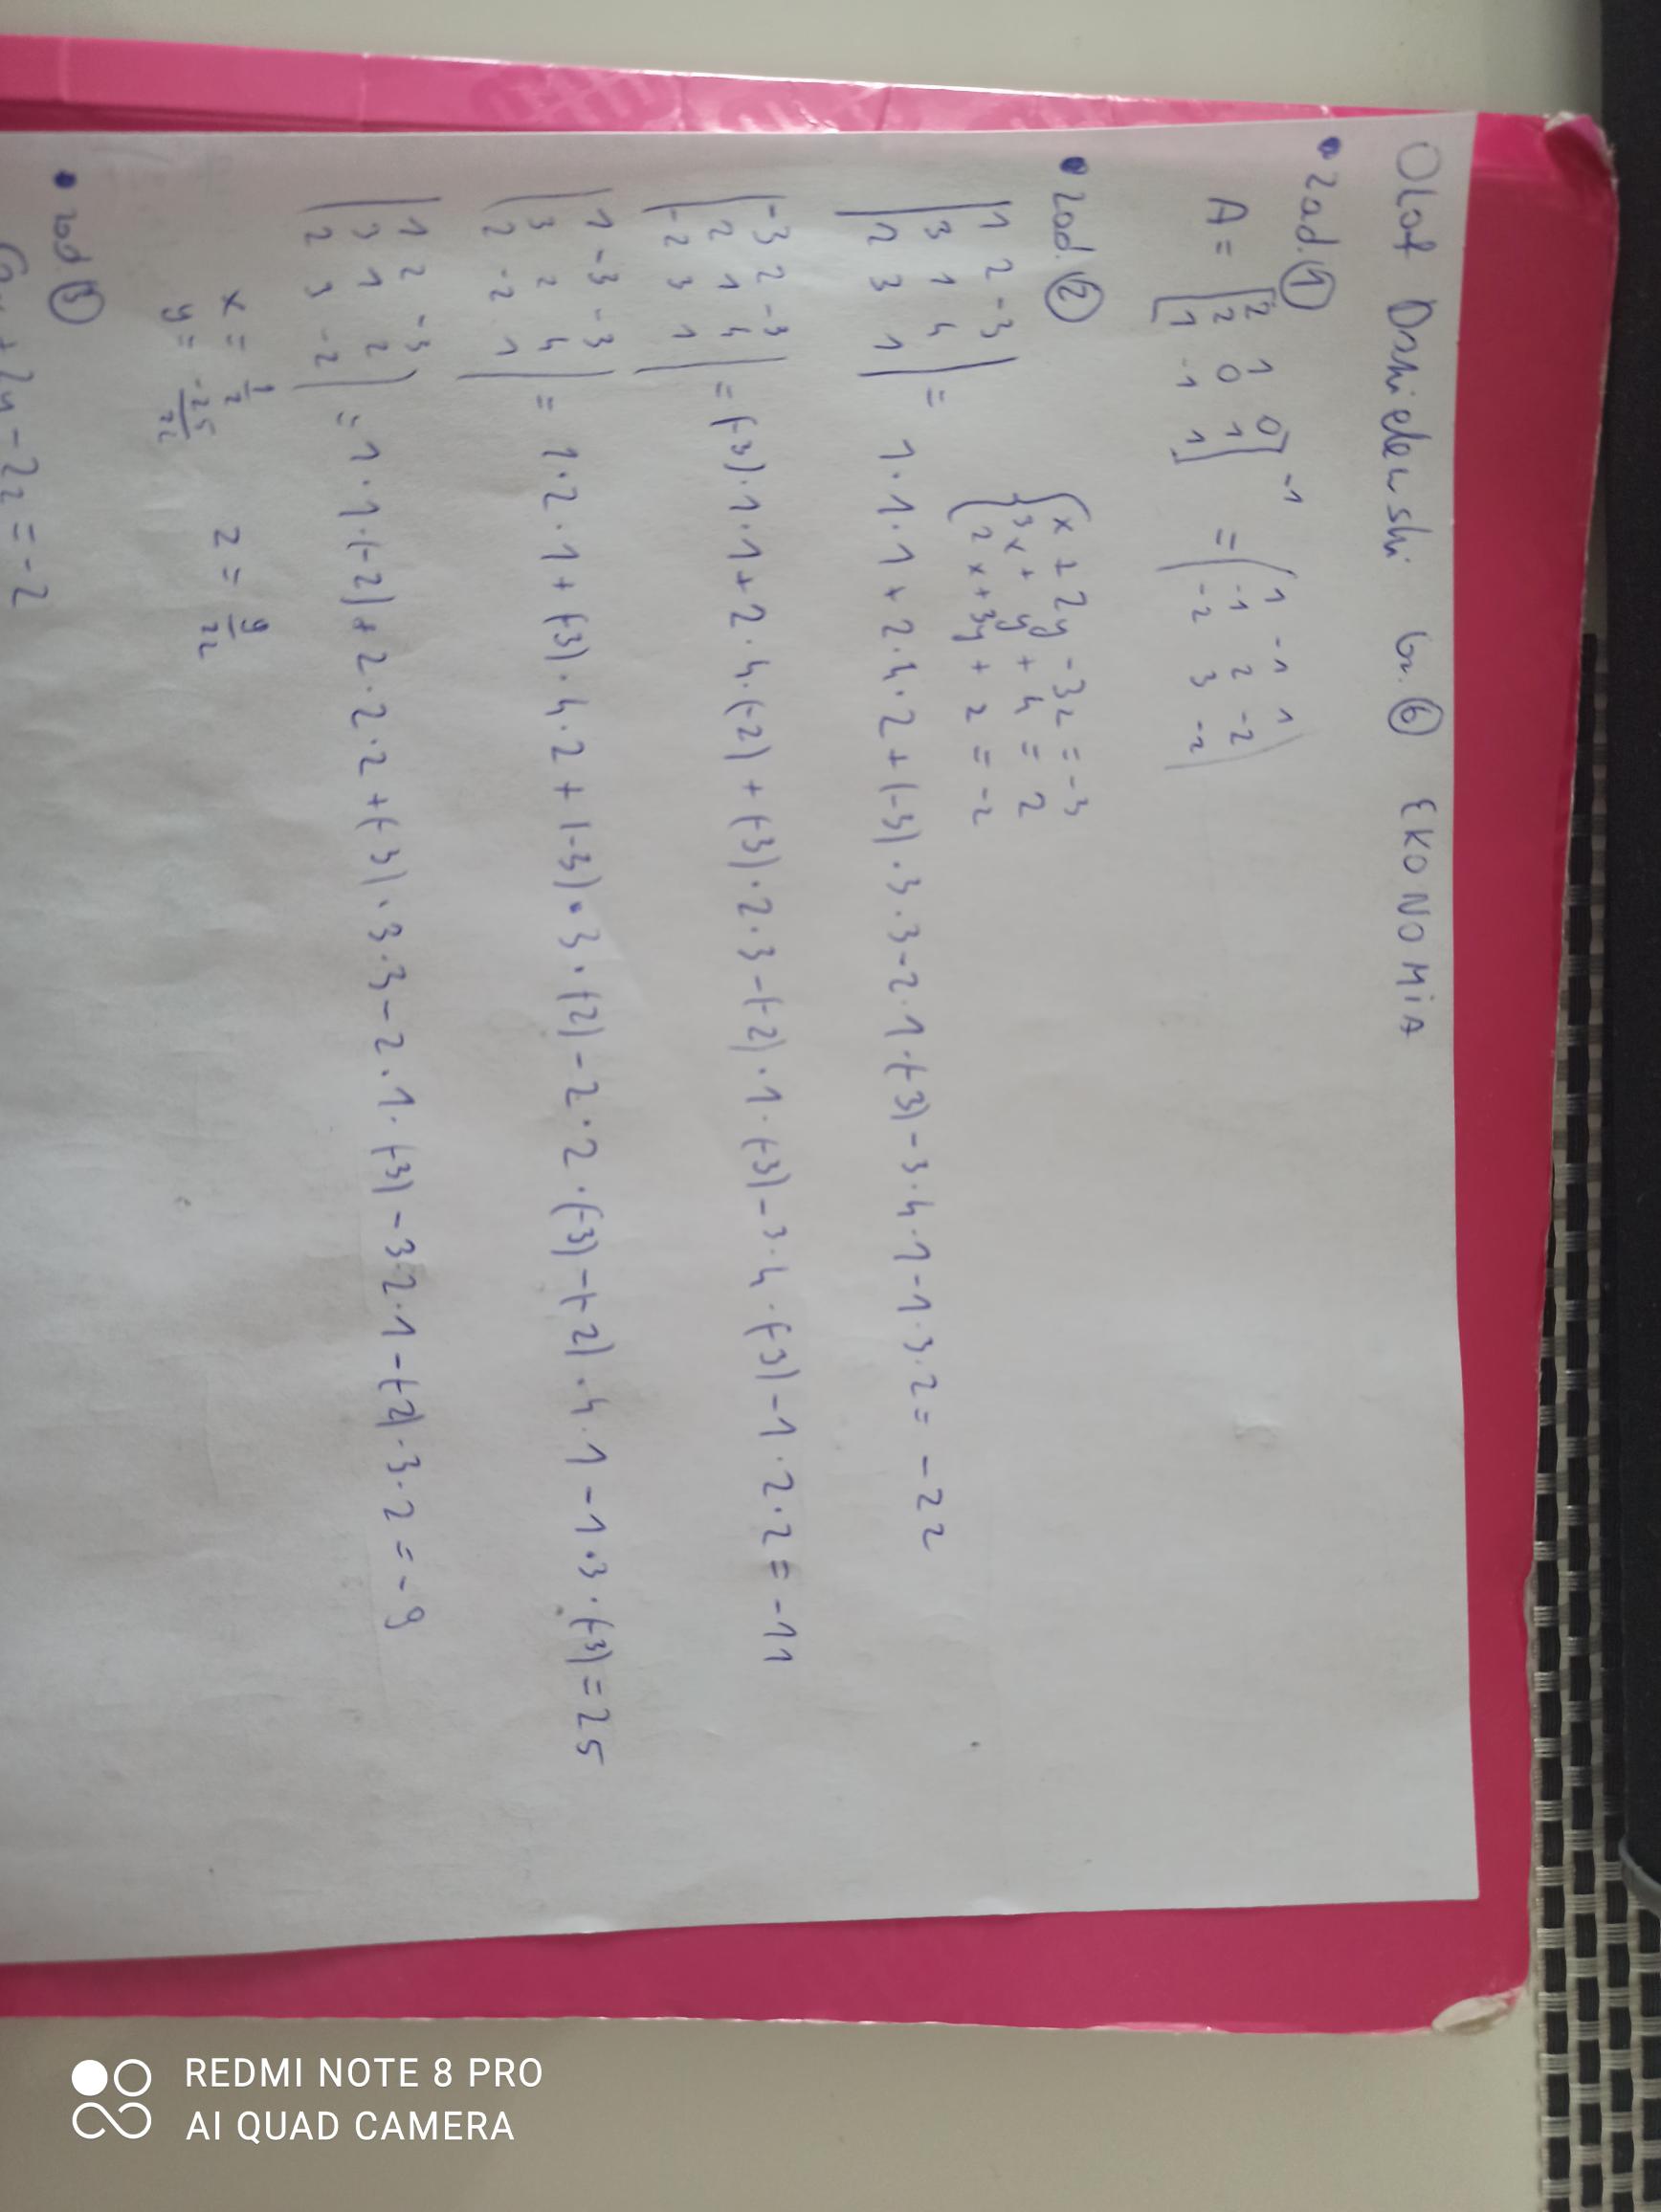 Olaf Danielewski Gr. 6 EKONOMIA
• Zad. 1
A = [2 1 0
2 0 1
1 -1 1]⁻¹ = (1 -1 1
-1 2 -2
-2 3 -2)
• Zad. 2
{x + 2y - 3z = -3
3x + y + 4 = 2
2x + 3y + z = -2
|1 2 -3
3 1 4
2 3 1| = 1·1·1 + 2·4·2 + (-3)·3·3 - 2·1·(-3) - 3·4·1 - 1·3·2 = -22
|-3 2 -3
2 1 4
-2 3 1| = (-3)·1·1 + 2·4·(-2) + (-3)·2·3 - (-2)·1·(-3) - 3·4·(-3) - 1·2·2 = -11
|1 -3 -3
3 2 4
2 -2 1| = 1·2·1 + (-3)·4·2 + (-3)·3·(-2) - 2·2·(-3) - (-2)·4·1 - 1·3·(-3) = 25
|1 2 -3
3 1 2
2 3 -2| = 1·1·(-2) + 2·2·2 + (-3)·3·3 - 2·1·(-3) - 3·2·1 - (-2)·3·2 = -9
x = 1/2 z = 9/22
y = -25/22
• zad 3
+ 2y - 2z = -2
REDMI NOTE 8 PRO
AI QUAD CAMERA